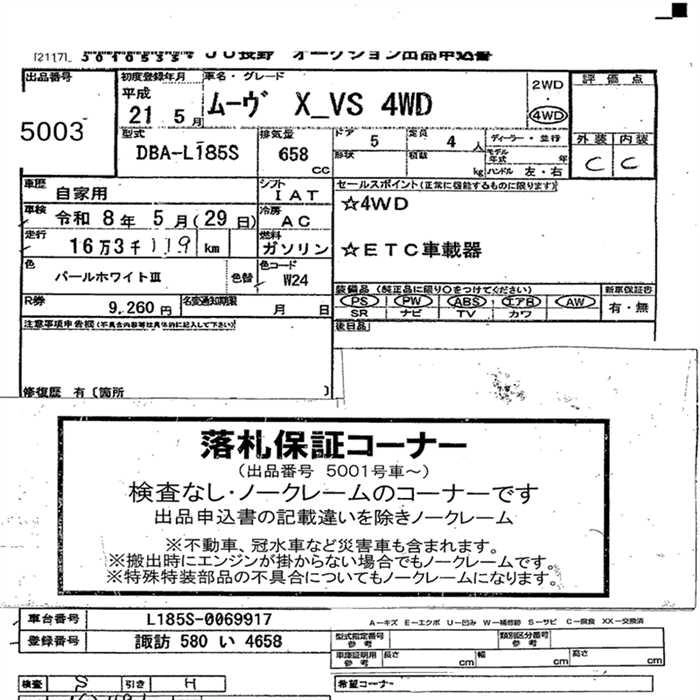 [2117]
JU長野 オークション出品申込書
出品番号 初度登録年月 車名・グレード 評価点
5003 平成 21 5月 ムーヴ X_VS 4WD 2WD・4WD
型式 排気量 ドア 5 定員 4 人 ディーラー・並行 外装 内装
DBA-L185S 658 cc 形状 積載 kg モデル年式 年 ハンドル 左・右 C C
車歴 自家用 シフト IAT セールスポイント(正常に機能するものに限ります)
車検 令和 8年 5月(29日) 冷房 AC ☆4WD
走行 16万3千119 km 燃料 ガソリン ☆ETC車載器
色 パールホワイトⅢ 色替 色コード W24
装備品(純正品に限り○をつけてください) 新車保証書
R券 9,260円 名変通知期限 月 日 PS PW ABS エアB AW 有・無
SR ナビ TV カワ
注意事項申告欄(不具合内容等は具体的に記入して下さい) 後日品
修復歴 有〔箇所 〕
落札保証コーナー
(出品番号 5001号車~)
検査なし・ノークレームのコーナーです
出品申込書の記載違いを除きノークレーム
※不動車、冠水車など災害車も含まれます。
※搬出時にエンジンが掛からない場合でもノークレームです。
※特殊特装部品の不具合についてもノークレームになります。
車台番号 L185S-0069917 A-キズ E-エクボ U-凹み W-補修跡 S-サビ C-腐食 XX-交換済
登録番号 諏訪 580 い 4658 型式指定番号 参考 類別区分番号 参考
車庫証明用 参考 長さ cm 幅 cm 高さ cm
検査 S 引き H 希望コーナー